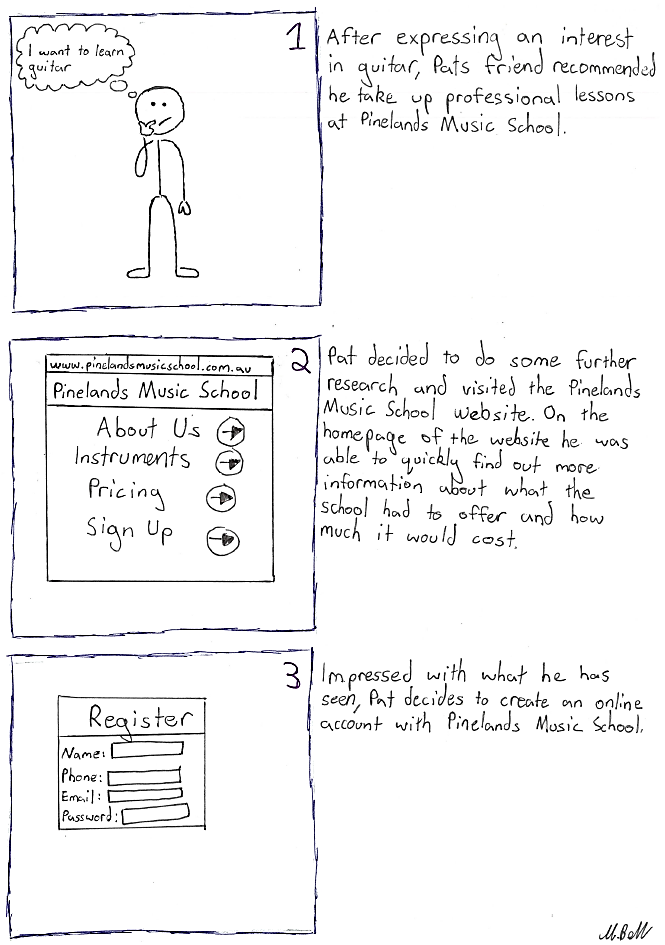 I want to learn
guitar
1
After expressing an interest
in guitar, Pats friend recommended
he take up professional lessons
at Pinelands Music School.
2
www.pinelandsmusicschool.com.au
Pinelands Music School
About Us
Instruments
Pricing
Sign Up
Pat decided to do some further
research and visited the Pinelands
Music School website. On the
homepage of the website he was
able to quickly find out more
information about what the
school had to offer and how
much it would cost.
3
Register
Name:
Phone:
Email:
Password:
Impressed with what he has
seen, Pat decides to create an online
account with Pinelands Music School.